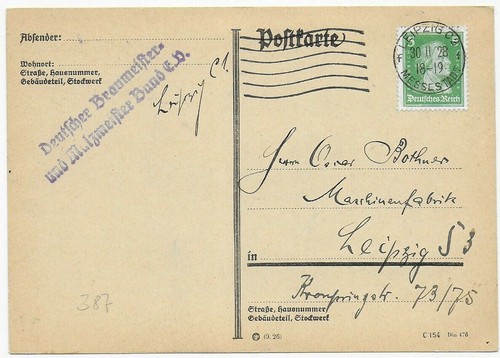 Absender:
Wohnort:
Straße, Hausnummer,
Gebäudeteil, Stockwerk
Deutscher Braumeister-
und Malzmeister Bund E.V.
Leipzig C1.
Postkarte
LEIPZIG C2
30 11 28
18-19
MESSESTADT
Deutsches Reich
Herrn Oscar Bothner
Maschinenfabrik
in Leipzig S 3
Kronprinzstr. 73/75
Straße, Hausnummer,
Gebäudeteil, Stockwerk
387
(9. 26)
C 154 Din 476